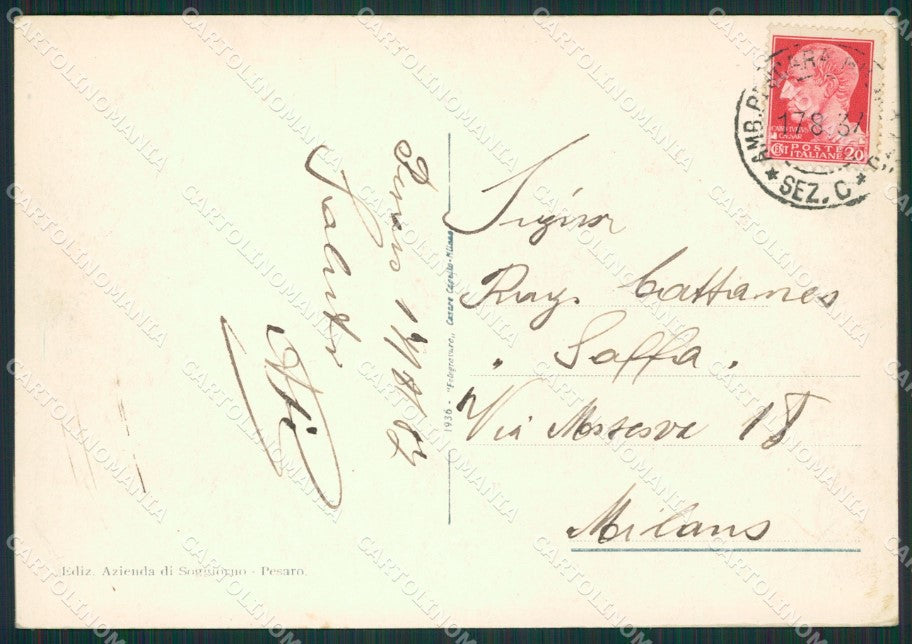 AMB. PESCARA
17 8 37
* SEZ. C *
CAIVS IVLIVS
CAESAR
CENT POSTE 20
ITALIANE
Signor
Rag. Cattaneo
"Saffa"
Via Moscova 18
Milano
Pesaro 17/8/37
Saluti
1936 - "Fotogravure" Cesare Capello - Milano
Ediz. Azienda di Soggiorno - Pesaro.
CARTOLINOMANIA